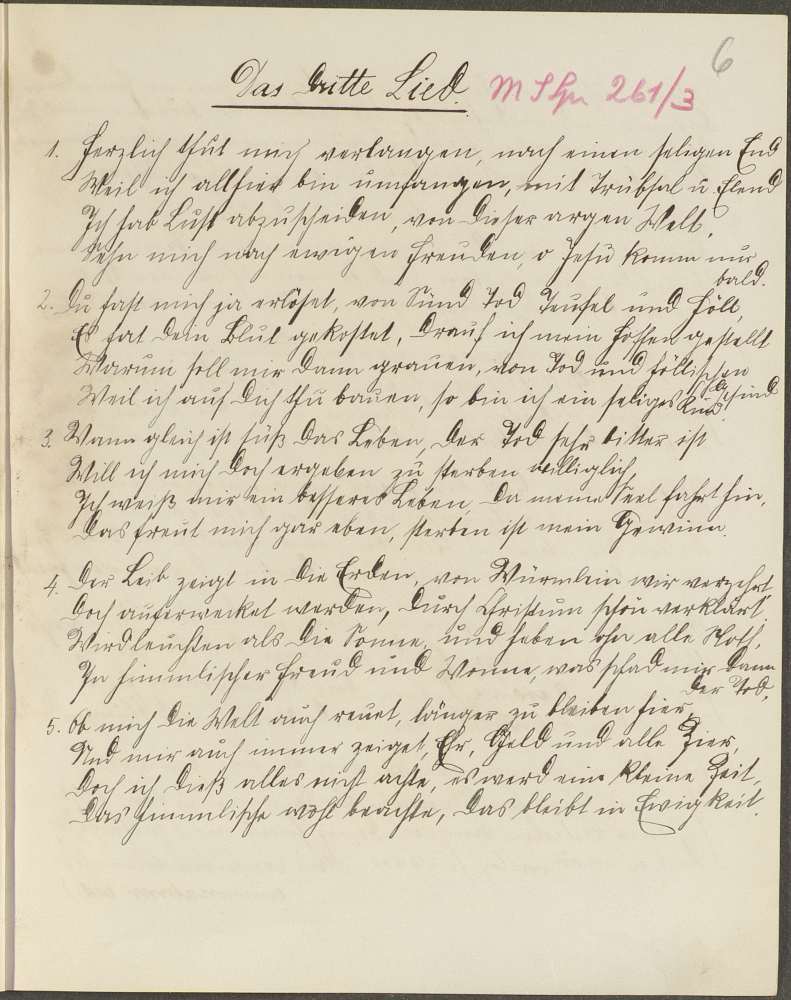 6
Das dritte Lied. M S Gr 261/3
1. Herzlich thut mich verlangen, nach einen seligen End
Weil ich allhier bin umfangen, mit Trübsal u Elend
Ich hab Lust abzuscheiden, von dieser argen Welt,
Sehn mich nach ewigen Freuden, o Jesu komm nur
bald.
2. Du hast mich ja erlöset, von Sünd Tod Teufel und Höll,
Es hat dein Blut gekostet, drauf ich mein Hoffen gestellt
Warum soll mir dann grauen, von Tod und höllischen
Gsind
Weil ich auf dich thu bauen, so bin ich ein seliges Kind
3. Wann gleich ist süß das Leben, der Tod sehr bitter ist
Will ich mich doch ergeben zu sterben williglich,
Ich weiß mir ein besseres Leben, da meine Seel fahrt hin,
Das freut mich gar eben, sterben ist mein Gewinn.
4. Der Leib zeigt in die Erden, von Würmlein wir verzehrt
Doch auferwecket werden, durch Christum schön verklärt
Wird leuchten als die Sonne, und leben ohn alle Noth,
In himmlischer Freud und Wonne, was schad mir dann
der Tod.
5. Ob mich die Welt auch reuet, länger zu bleiben hier,
Und mir auch immer zeiget, Ehr, Geld und alle Zier,
Doch ich dieß alles nicht achte, es werd eine kleine Zeit,
Das himmlische wohl beachte, das bleibt in Ewigkeit.